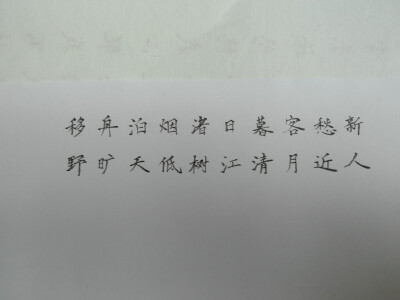 移舟泊烟渚日暮客愁新
野旷天低树江清月近人